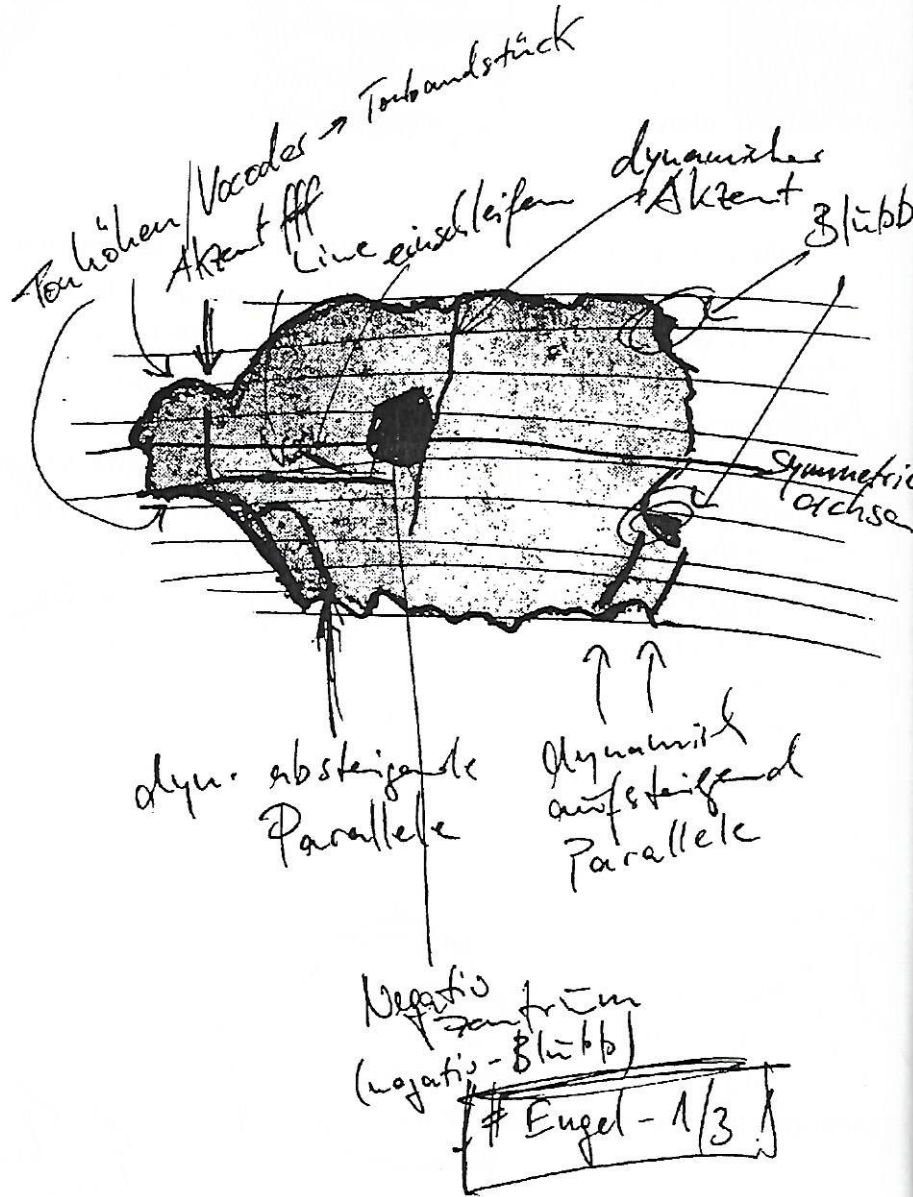 Tonhöhen/Vocoder → Tonbandstück
Akzent fff
Line einschleifen
dynamischer
Akzent
Blübb
Symmetrie
achsen
dyn. absteigende
Parallele
dynamisch
aufsteigend
Parallele
Negativ
zentrum
(negativ-Blübb)
# Engel - 1/3